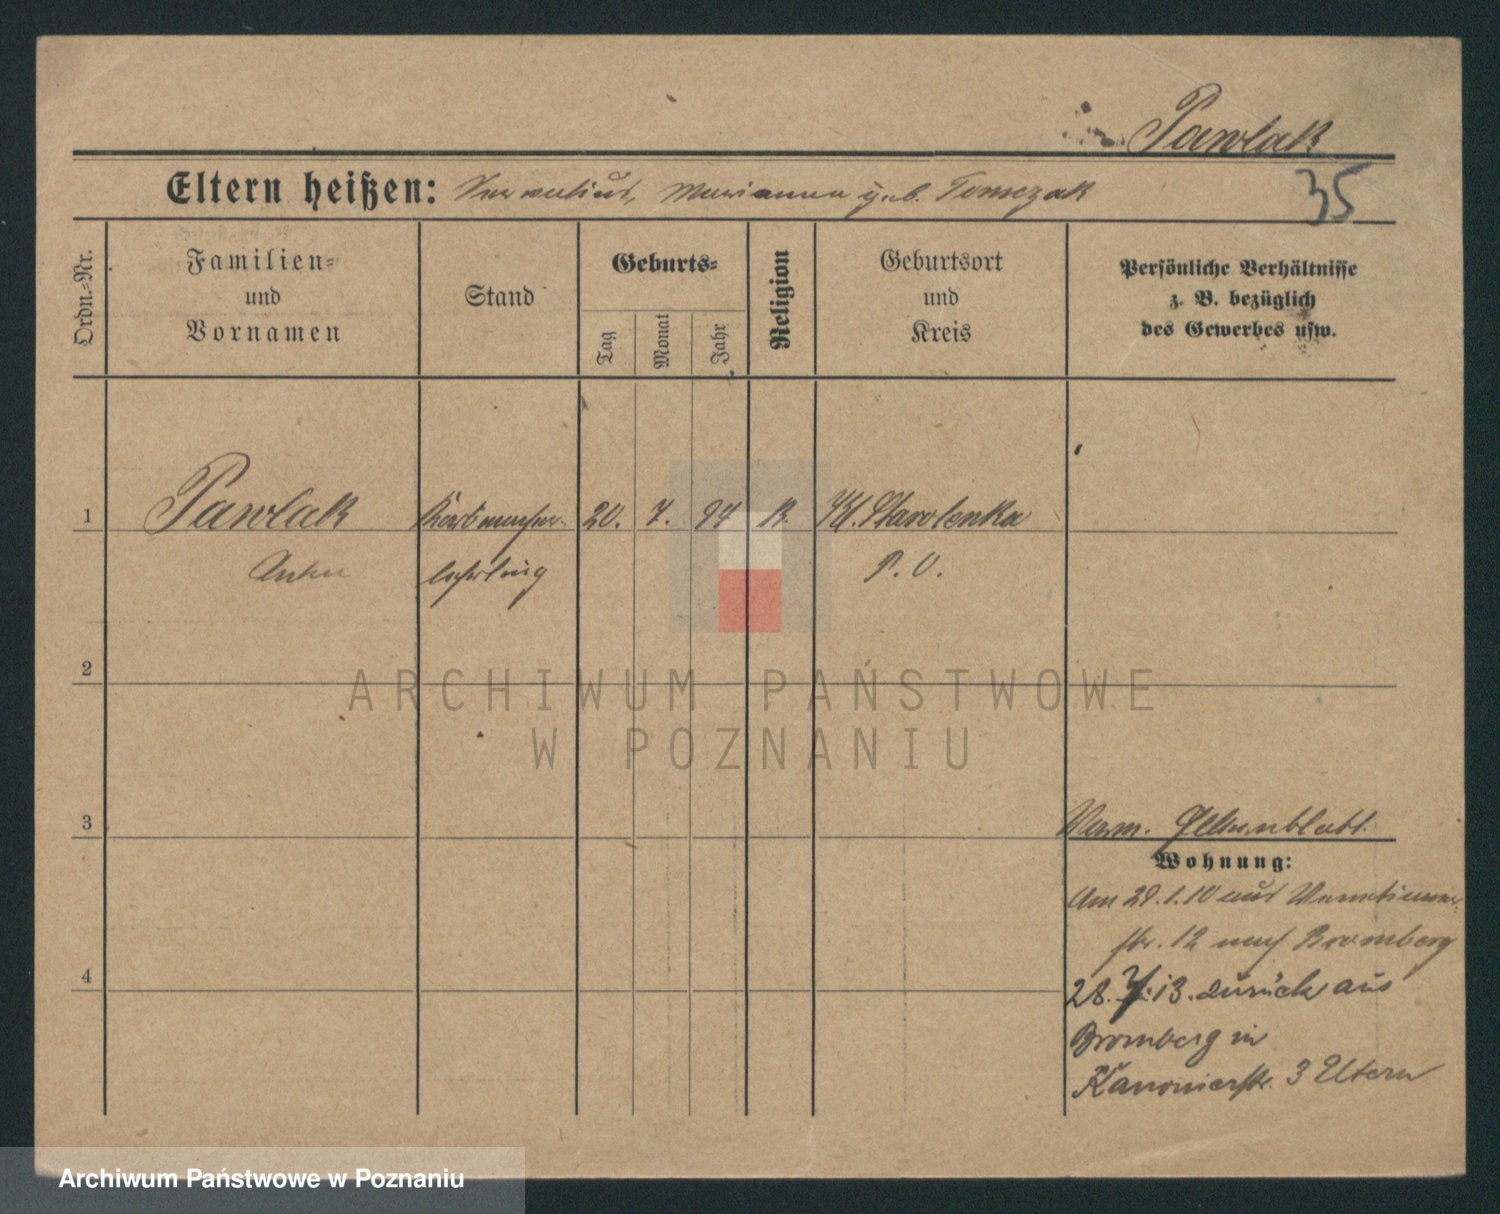 Pawlak
Eltern heißen: Marianna geb. Tomczak
35
Ordn.-Nr.
Familien-
und
Vornamen
Stand
Geburts-
Tag
Monat
Jahr
Religion
Geburtsort
und
Kreis
Persönliche Verhältnisse
z. B. bezüglich
des Gewerbes usw.
1
Pawlak
20. 7. 94 Kl. Starolenka
lehrling
P. O.
2
ARCHIWUM PAŃSTWOWE
W POZNANIU
3
Verm. Elternblatt.
Wohnung:
Am 28.1.10 aus
str. 12 nach Bromberg
4
28. 7. 13. zurück aus
Bromberg in
Kanonierstr. 3 Eltern
Archiwum Państwowe w Poznaniu